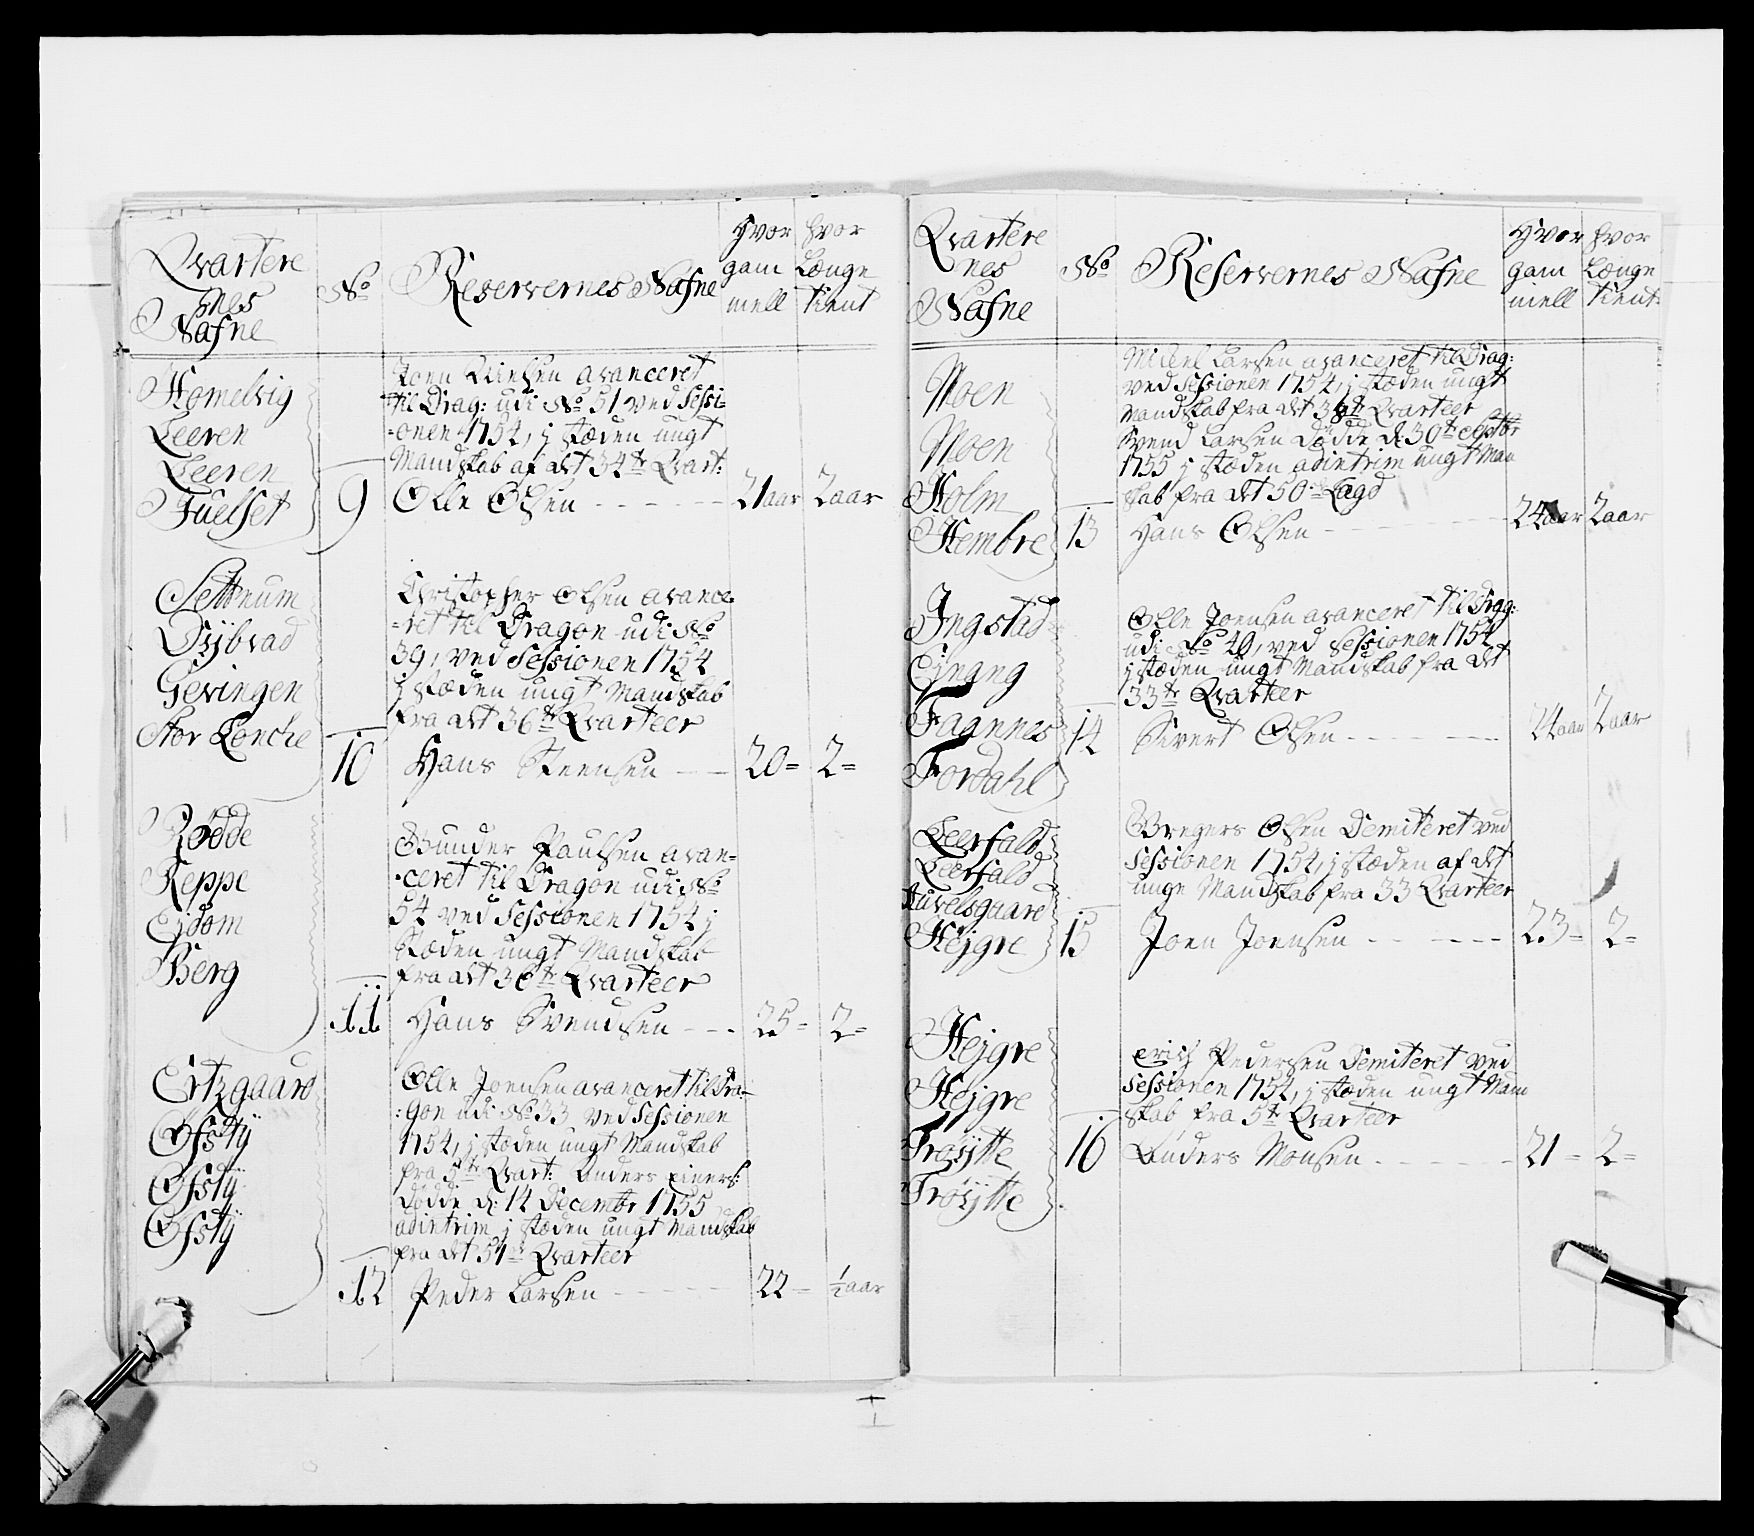 Qvartere
nes
Nafne
No
Reservernes Nafne
Hvor
gam
mell
hvor
Længe
tient
Homelvig
Leeren
Leeren
Fuelset
9
Joen avanceret
til Drag: udi No 51 ved Sessi-
-onen 1754, j stæden ungt
Mandskab af det 34te Qvart:
Olle Olsen
21 aar
2 aar
Settnum
Dybvad
Gevingen
Stor Lonche
10
Christopher Olsen avance
-ret til Dragon udi No
39, ved Sessionen 1754
j stæden ungt Mandskab
fra det 36te Qvarteer
Hans Steensen
20=
2=
Rodde
Reppe
Ejdom
Berg
11
Gunder Paulsen avan=
-ceret til Dragon udi No
54 ved Sessionen 1754 j
stæden ungt Mandskab
fra det 36te Qvarteer
Hans Svendsen
25=
2=
Ertzgaard
Ofstÿ
Ofstÿ
Ofstÿ
12
Olle Joensen avanceret til Dra-
:gon udi No 33 ved Sessionen
1754, j stæden ungt Mandskab
fra 5te Qvart: Anders Einers:
Dødde d: 14 Decembr 1755
adintrim j stæden ungt Mandskab
fra det 51te Qvarteer
Peder Larsen
22=
½ aar
Qvartere
nes
Nafne
No
Reservernes Nafne
Hvor
gam
mell
hvor
Længe
tient
Moen
Moen
Holm
Hembre
13
Michel Larsen avanceret til Drag:
ved Sessionen 1754, j stæden ungt
Mandskab fra det Qvarteer
Svend Larsen Dødde d: 30te
1755 j stæden adintrim ungt Man
skab fra det 50te Lagd
Hans Olsen
24 aar
2 aar
Ingstad
Ejnang
Faannes
Fordahl
14
Olle Joensen avanceret til Drag:
udi No 49, ved Sessionen 1754
j stæden ungt Mandskab fra det
33te Qvarteer
Sivert Olsen
24 aar
2 aar
Leerfald
Leerfald
Auvelsgaard
Hejgre
15
Gregers Olsen Demiteret ved
Sessionen 1754, j stæden af det
unge Mandskab fra 33 Qvarteer
Joen Joensen
23=
2=
Hejgre
Hejgre
Trøÿtte
Trøÿtte
16
Erich Pedersen Demiteret ved
Sessionen 1754, j stæden ungt Mand
skab fra 5te Qvarteer
Anders Monsen
21=
2=